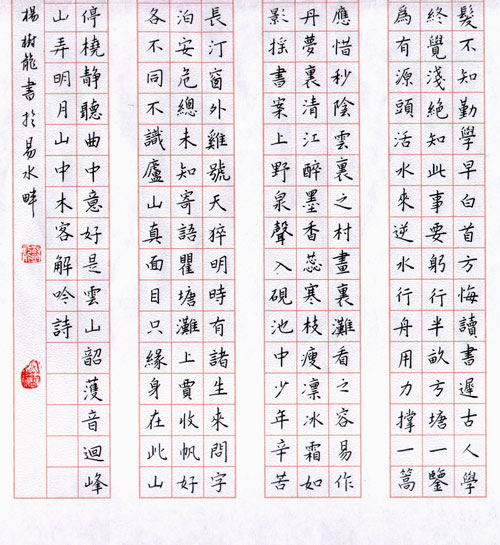 髮不知勤學早白首方悔讀書遲古人學
終覺淺絕知此事要躬行半畝方塘一鑒
為有源頭活水來逆水行舟用力撐一篙
應惜秒陰雲裏之村畫裏灘看之容易作
丹夢裏清江醉墨香蕊寒枝瘦凜冰霜如
影搖書案上野泉聲入硯池中少年辛苦
長汀窗外雞號天猝明時有諸生來問字
泊安危總未知寄語瞿塘灘上賈收帆好
各不同不識廬山真面目只緣身在此山
停橈靜聽曲中意好是雲山韶濩音迴峰
山弄明月山中木客解吟詩
楊樹龍書於易水畔